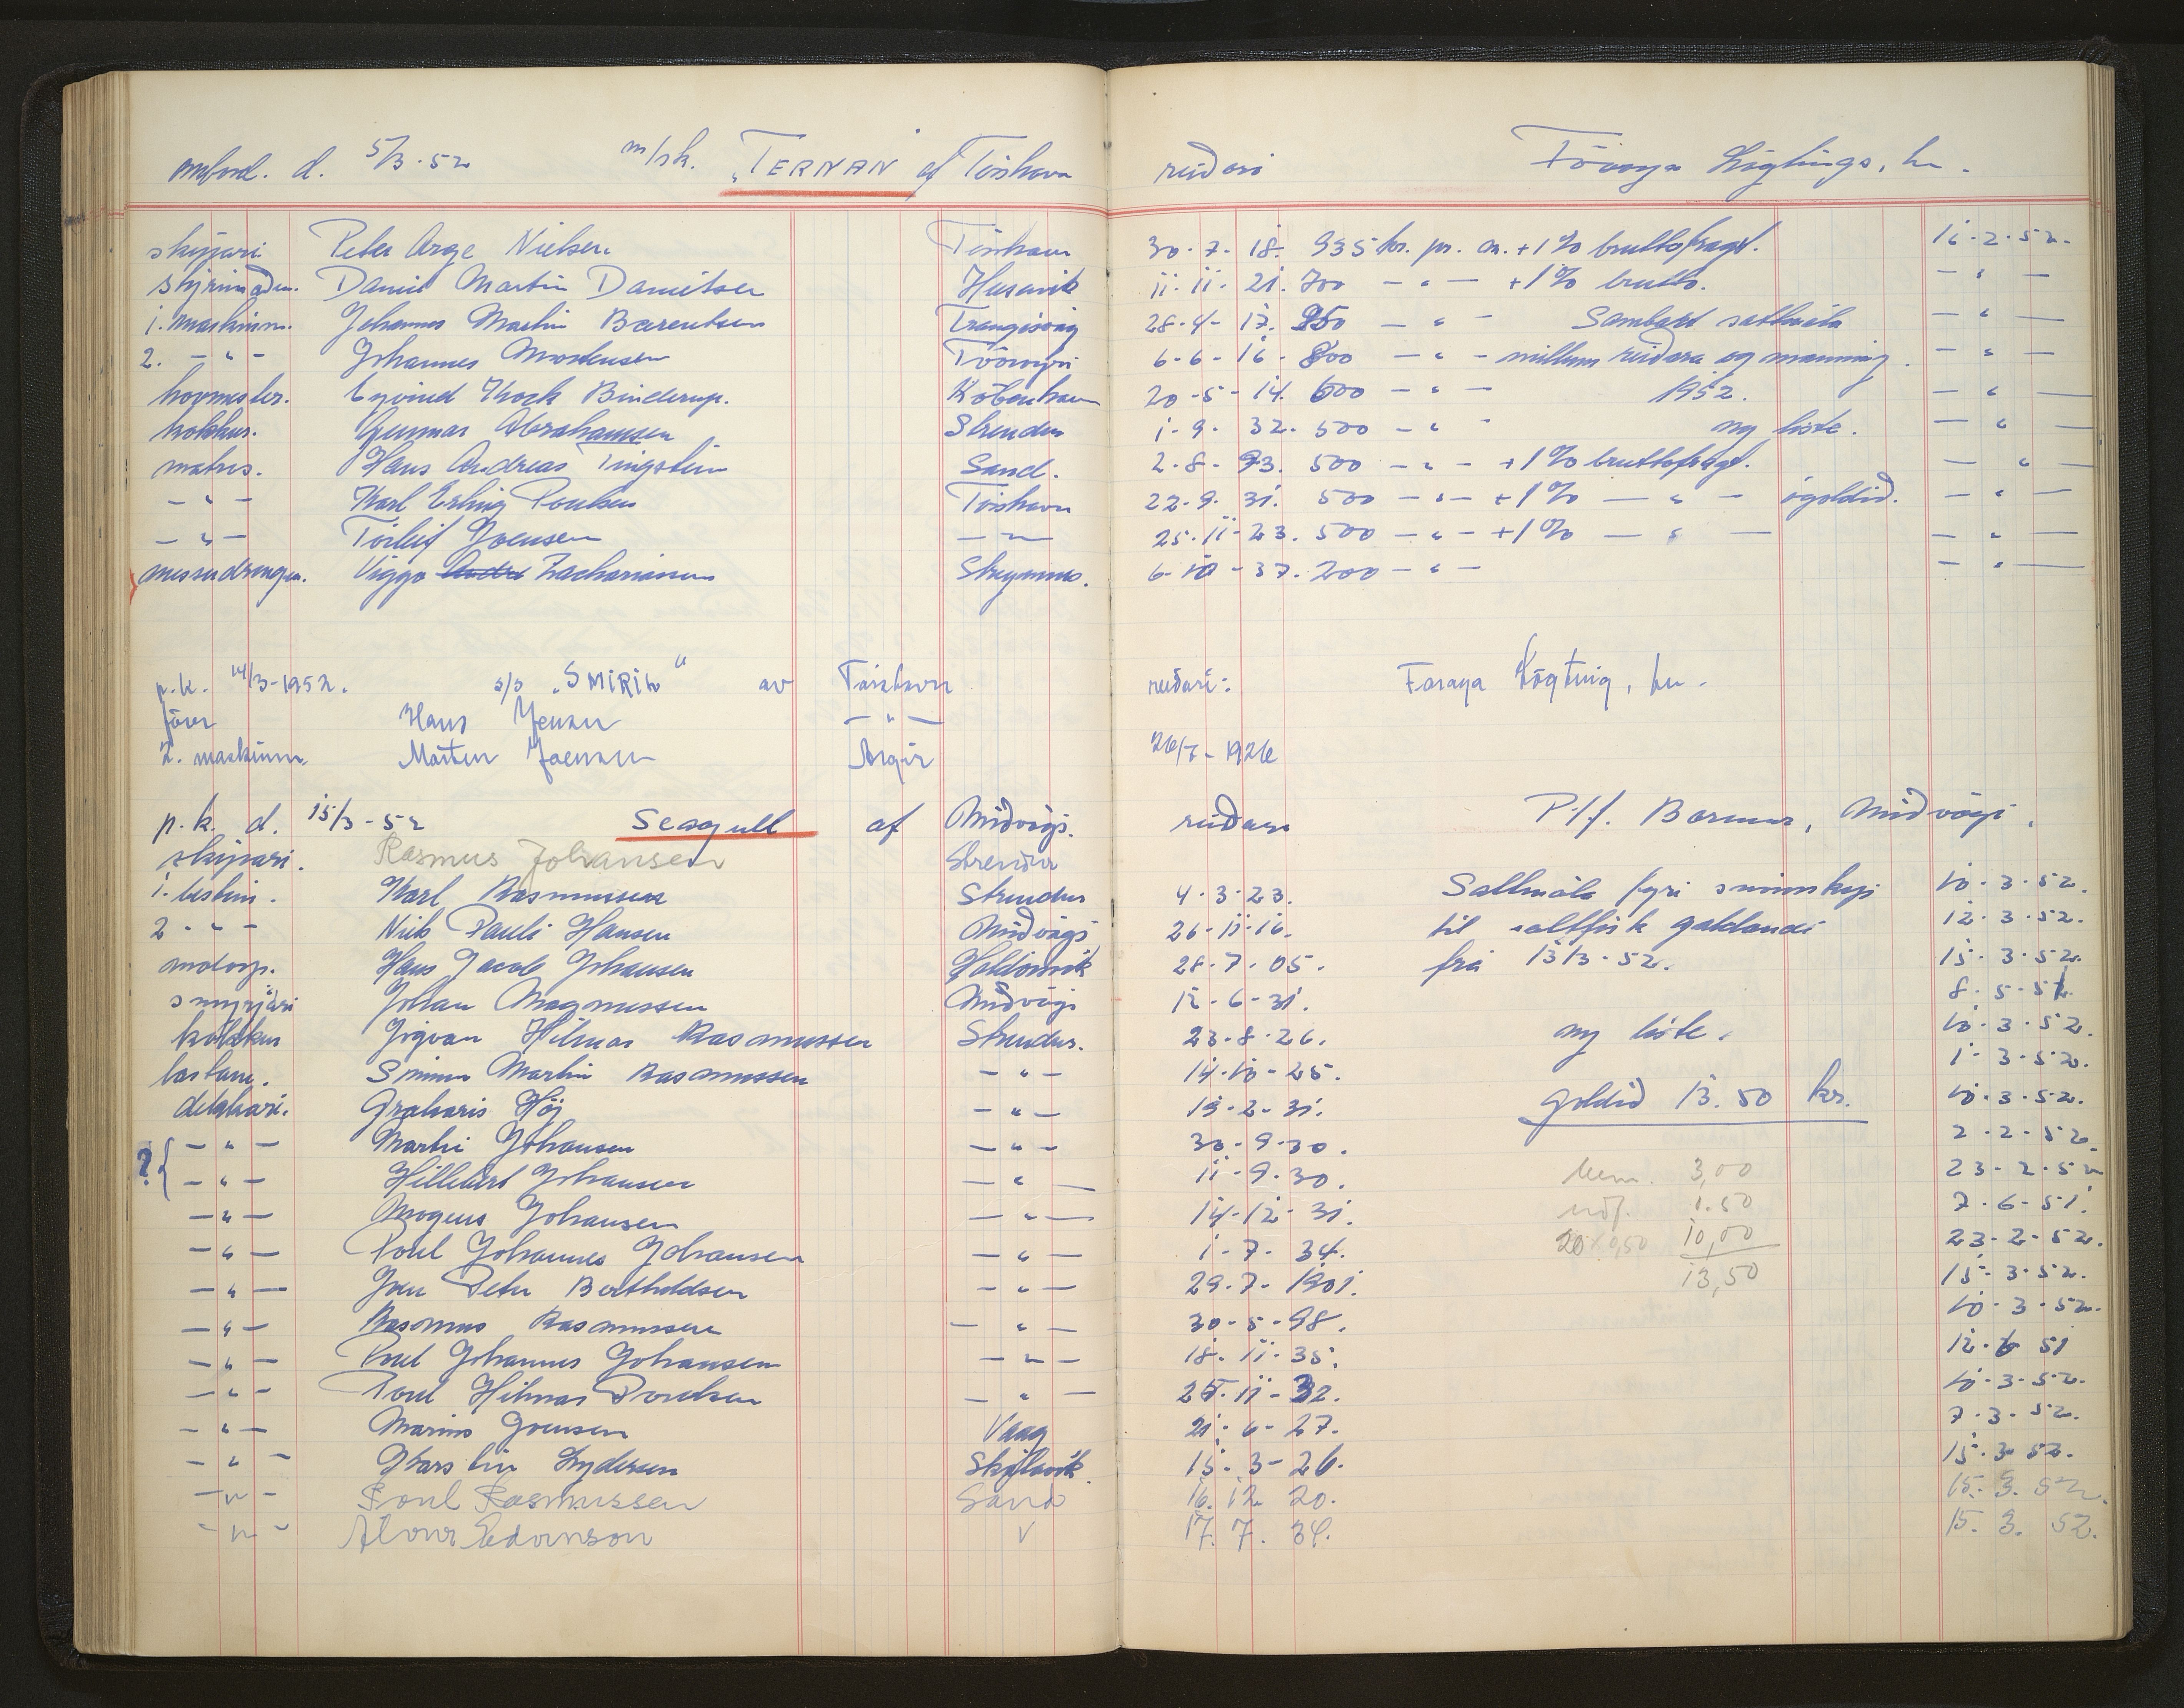 ombord. d. 5/3-52 m/sk. „TERNAN" af Tórshavn reiðari Föroya Lögtings, hn.
skipari Peter Arge Nielsen Tórshavn 30-7-18. 935 kr. pr. m. +1% bruttofragt. 16-2-52.
stýrimaður. Daniel Martin Danielsen Húsavik 11-11-21. 700 — " — +1% brutto. — " —
1. maskinm. Johannes Martin Berentsen Trangisvág 28-4-17. 950 — " — Sambært sáttmála — " —
2. — " — Johannes Mortensen Tvöroyri 6-6-16. 800 — " — millum reiðara og manning. — " —
hovmester. Eyvind Koch Binderup. Köbenhavn 20-5-14. 600 — " — 1952. — " —
kokkur. Gunnar Abrahamsen Strendur 1-9-32. 500 — " — ny liste. — " —
matrós. Hans Andreas Tingstein Sand. 2-8-93. 500 — " — +1% bruttofragt. — " —
— " — Karl Erling Poulsen Tórshavn 22-9-31. 500 — " — +1% — " — ógoldið. — " —
— " — Tórleif Joensen — " — 25-11-23. 500 — " — +1% — " — — " —
messudrongur. Viggo Zachariassen Streymnes. 6-10-37. 200 — " — — " —
p.k. 14/3-1952. s/s „SMIRIL" av Tórshavn reiðari: Föroya Lögting, hn.
förer Hans Jensen — " —
2. maskinm. Morten Joensen Argir 26/7-1926
p.k. d. 15/3-52 Seagull af Miðvági. reiðari P/f. Barmur, Miðvági.
skipari. Rasmus Johansen Strendur
1. bestim. Karl Rasmussen Strendur 4-3-23. Sáttmála fyri sninskip 10-3-52.
2 - " - Niels Pauli Hansen Miðvági 26-11-16. til saltfisk galdandi 12-3-52.
motorp. Hans Jacob Johansen Haldórsvík 28-7-05. frá 13/3-52. 15-3-52.
smyrjari Johan Magnussen Miðvági 12-6-31. 8-5-51.
kokkur Jógvan Hilmar Rasmussen Strendur. 23-8-26. ny liste. 10-3-52.
lastarm. Simun Martin Rasmussen — " — 14-10-25. 1-3-52.
dekkari. Zakaris Høj — " — 19-2-31. goldið 13.50 kr. 10-3-52.
? { — " — Martin Johansen — " — 30-9-30. 2-2-52
— " — Hillibart Johansen — " — 11-9-30. 3,00 23-2-52
— " — Mogens Johansen — " — 14-12-31. 1.50 7-6-51.
— " — Poul Johannes Johansen — " — 1-7-34. 20 x 0,50 10,00 23-2-52.
— " — Jóen Peter Bertholdsen — " — 29-7-1901. 13,50 15-3-52.
— " — Rasmus Rasmussen — " — 30-5-98. 10-3-52.
— " — Poul Johannes Johansen — " — 18-11-35. 12-6 51
— " — Poul Hilmar Poulsen — " — 25-11-32. 10-3-52.
— " — Marius Joensen Vaag 21-6-27. 7-3-52.
— " — Karstin Lydersen Skálavík. 15-3-26. 15-3-52.
— " — Poul Rasmussen Sand 16. 12 20. 15. 3. 52.
— " — V 17. 7. 34. 15. 3. 52.